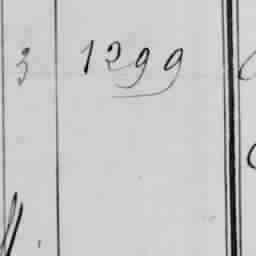 3 1299